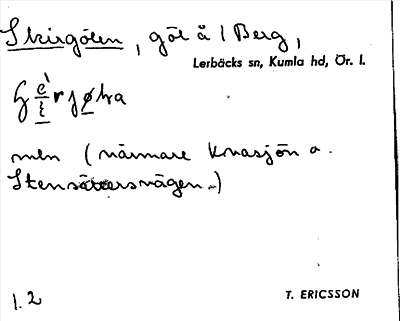 Skirgölen, göl å / Berg,
Lerbäcks sn, Kumla hd, Ör. l.
mln (närmare Knasjön o.
Stensätersvägen.)
1.2
T. ERICSSON